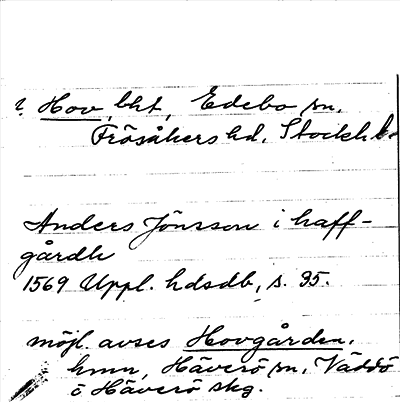 ? Hov, bht, Edebo sn,
Frösåkers hd, Stockh. l.
Anders Jönsson i haff-
gårdh
1569 Uppl. hdsdb, s. 35.
möjl. avses Hovgården,
hmn, Häverö sn, Väddö
o Häverö skg.